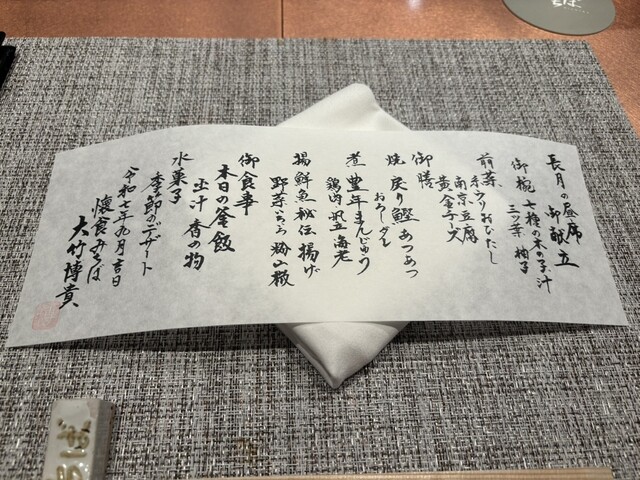 長月の昼席
御献立
御椀 七種の木の子汁
三ツ葉 柚子
前菜
南京豆腐
黄金子文
御膳
焼 戻り鰹あつあつ
おろしダレ
煮 豊年まんじゅう
鶏肉 帆立 海老
揚 鮮魚秘伝揚げ
野菜いろいろ 粉山椒
御食事
本日の釜飯
出汁 香の物
水菓子
季節のデザート
令和七年九月吉日
懐食みちば
大竹博貴